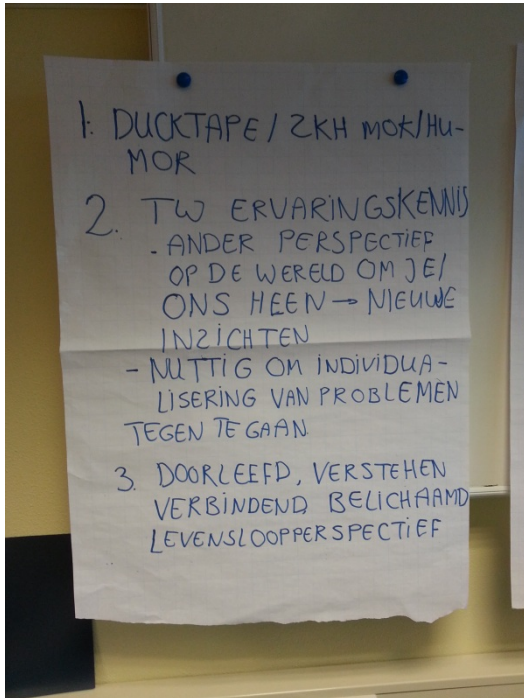 1: DUCKTAPE / ZKH MOK/HU-
MOR
2. TW ERVARINGSKENNIS
- ANDER PERSPECTIEF
OP DE WERELD OM JE/
ONS HEEN → NIEUWE
INZICHTEN
- NUTTIG OM INDIVIDUA-
LISERING VAN PROBLEMEN
TEGEN TE GAAN
3. DOORLEEFD, VERSTEHEN
VERBINDEND BELICHAAMD
LEVENSLOOPPERSPECTIEF